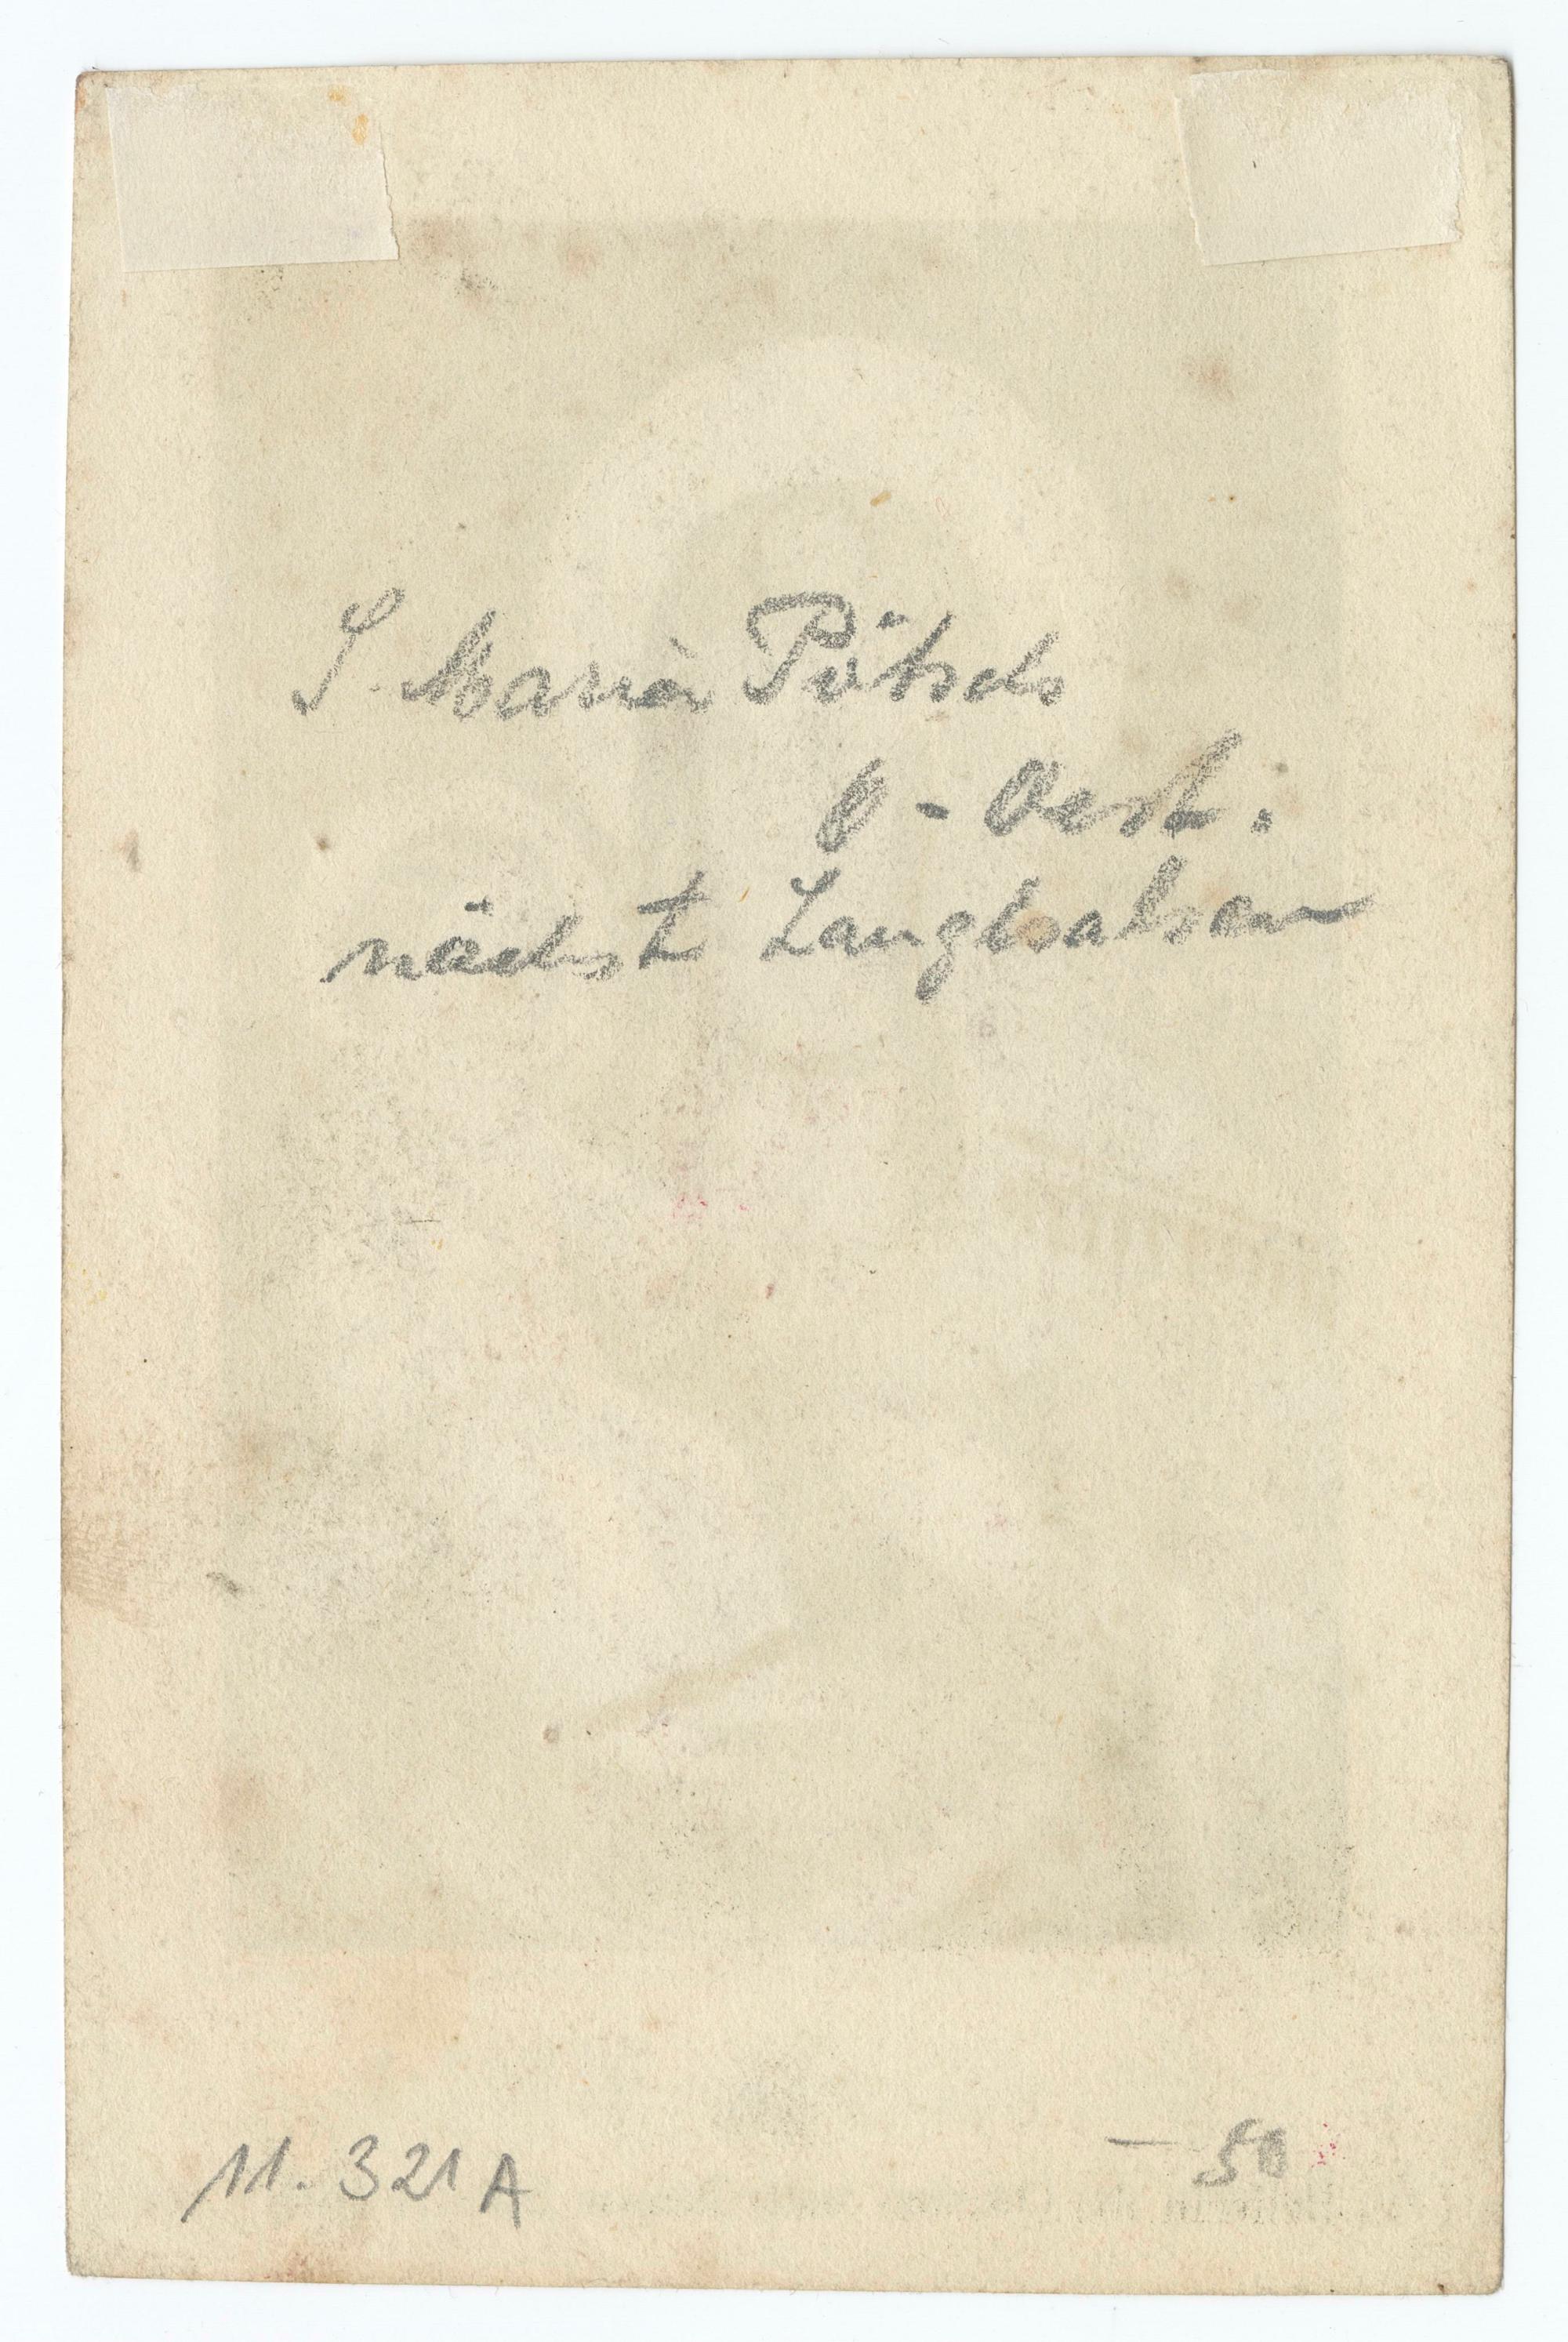 S. Maria Pötsch
O-Oest.
nächst Langhalsen
11.321A
— 50